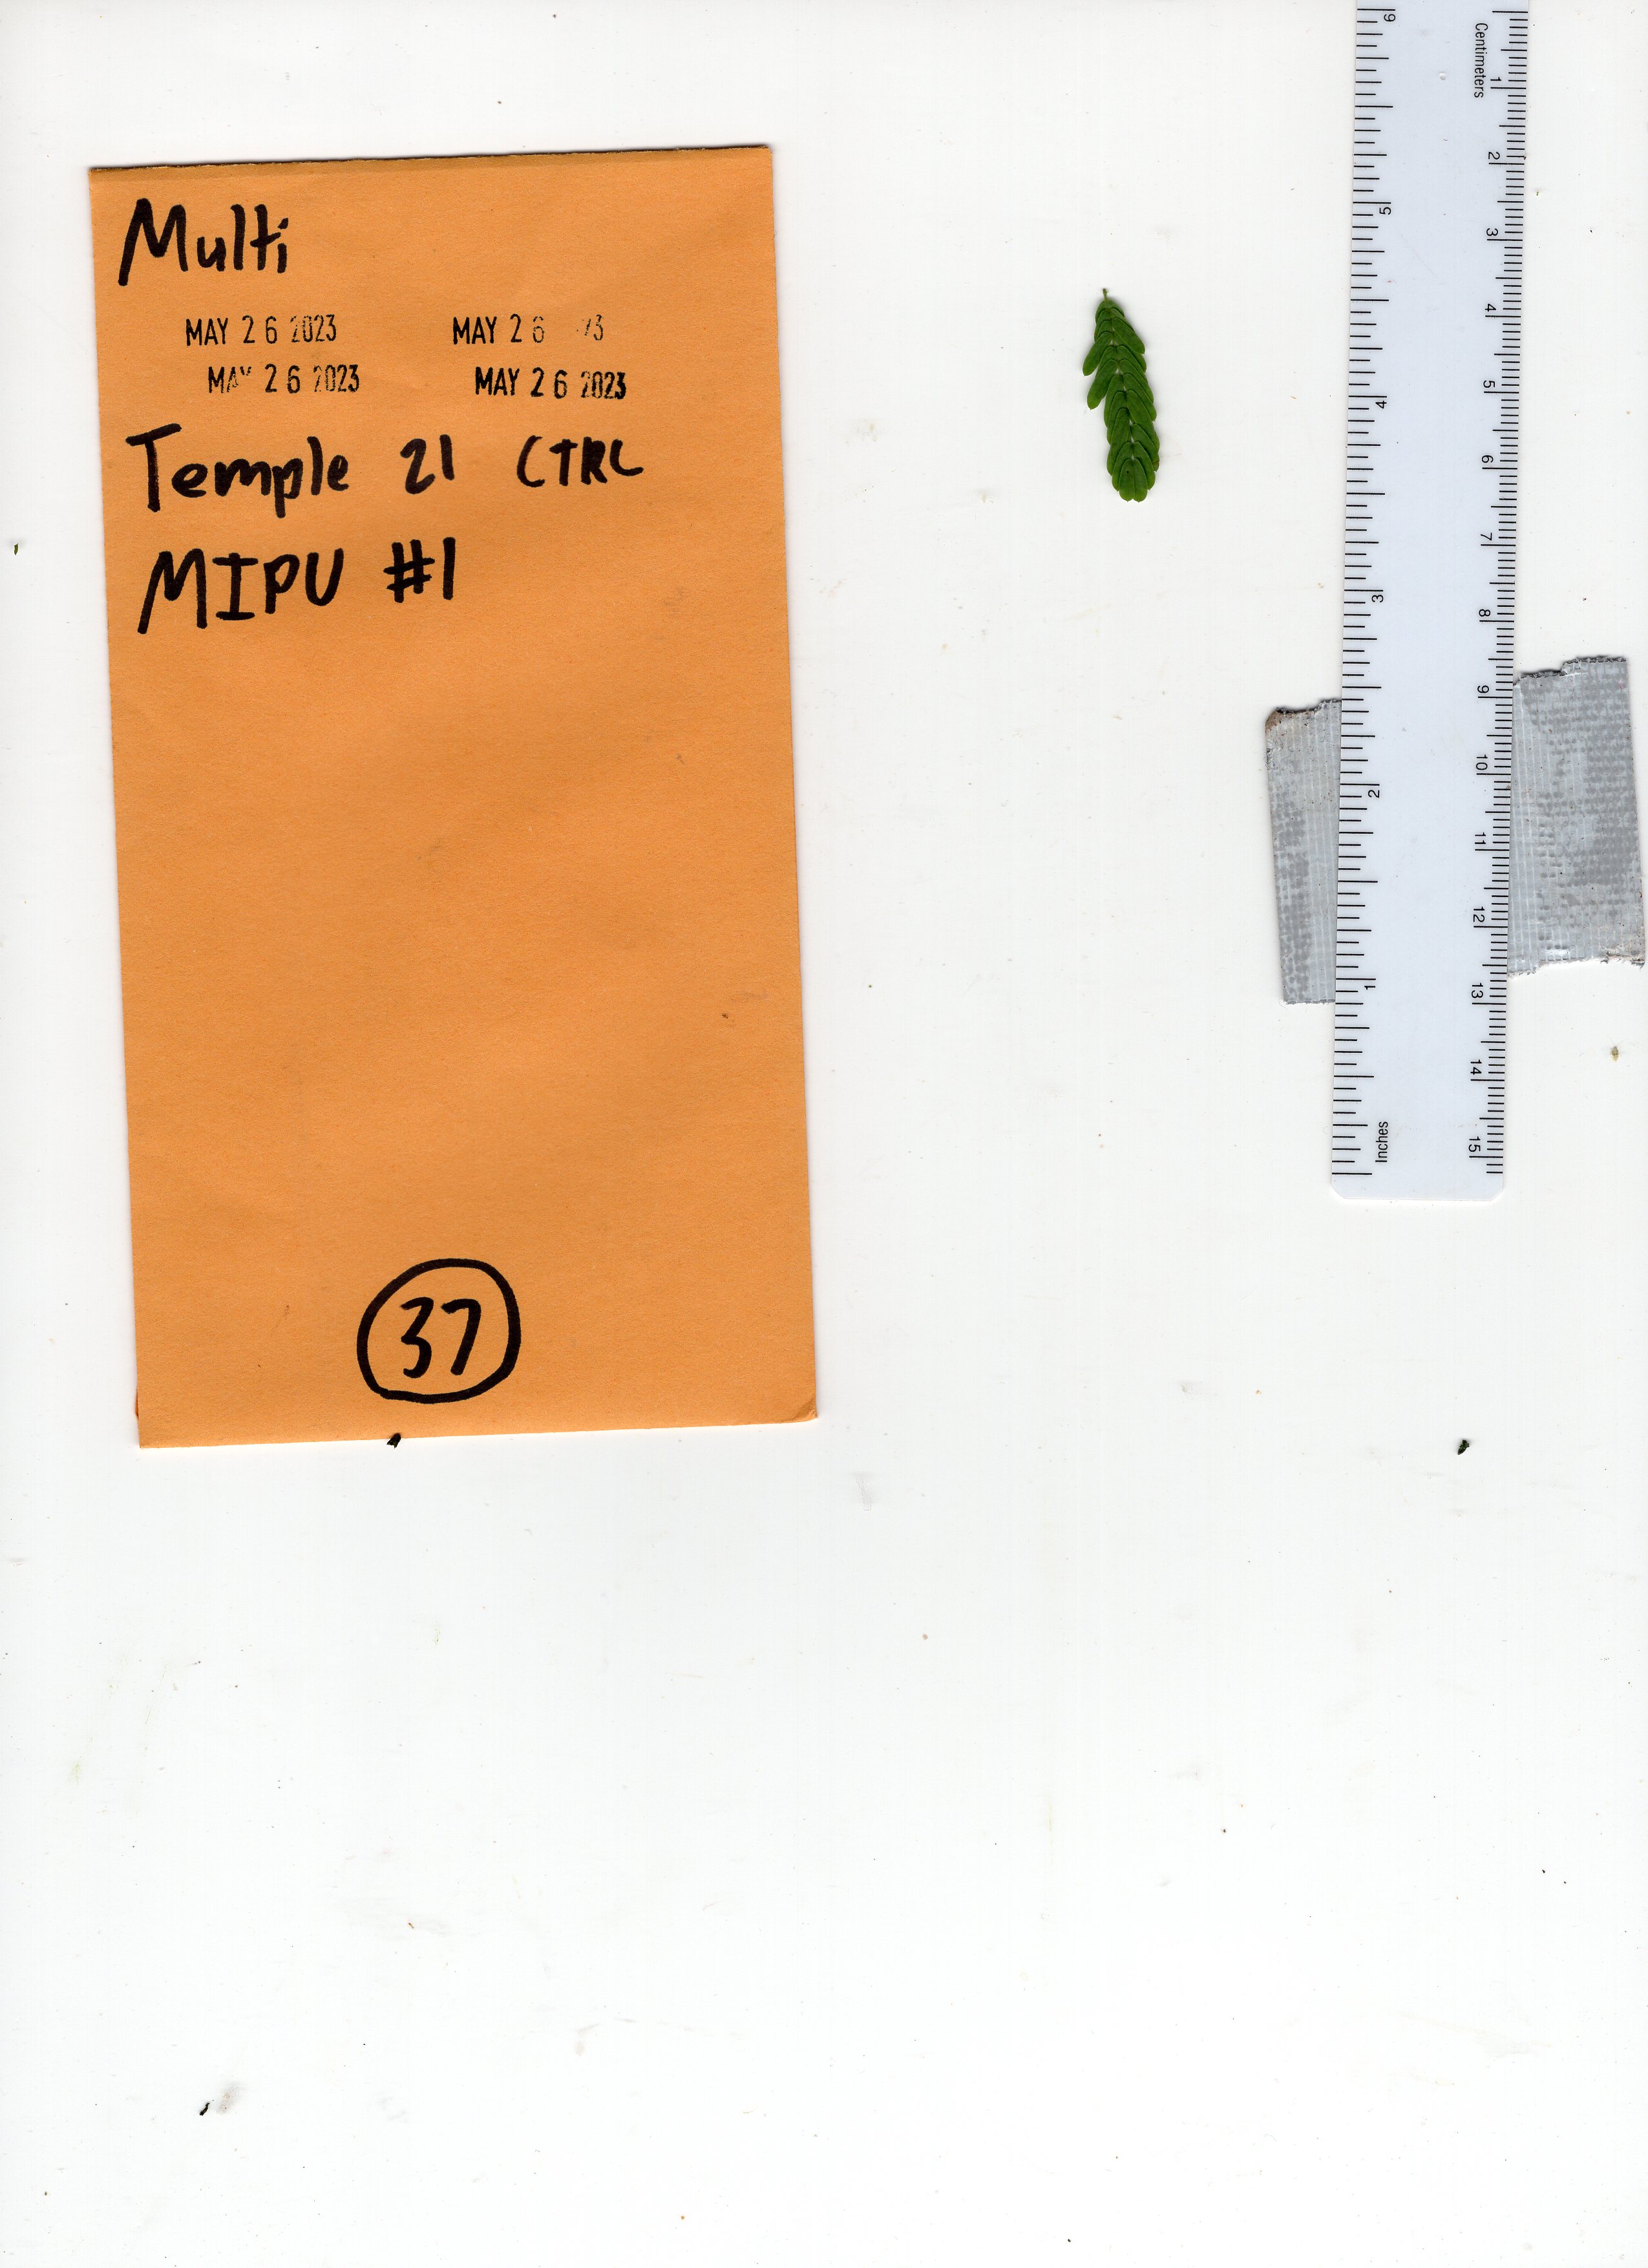 Multi
MAY 26 2023 MAY 26
MAY 26 2023 MAY 26 2023
Temple 21 CTRL
MIPU #1
37
Centimeters
1
2
3
4
5
6
7
8
9
10
11
12
13
14
15
6
5
4
3
2
1
Inches